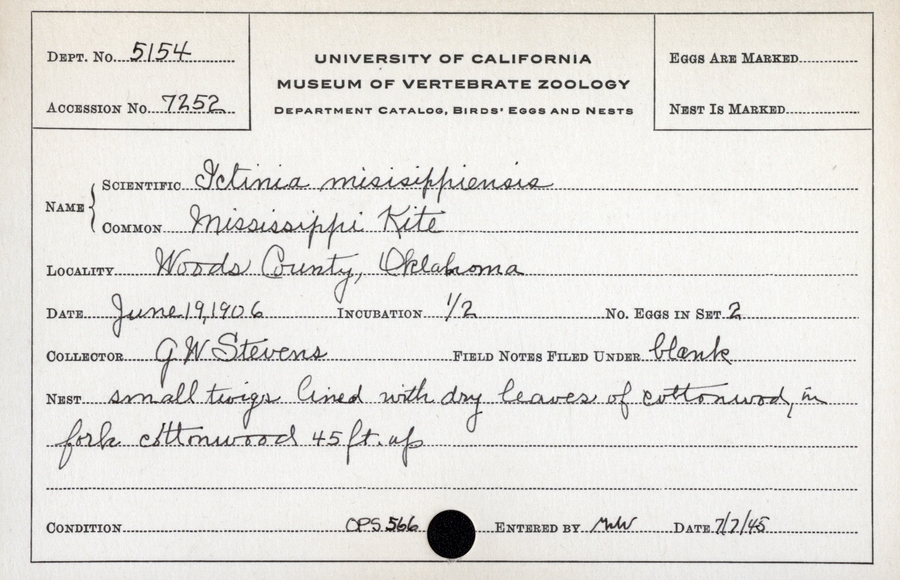 Dept. No. 5154
Accession No. 7252
University of California
Museum of Vertebrate Zoology
Department Catalog, Birds' Eggs and Nests
Eggs Are Marked
Nest Is Marked
Name
Scientific Ictinia misisippiensis
Common Mississippi Kite
Locality Woods County, Oklahoma
Date June 19, 1906 Incubation 1/2 No. Eggs in Set 2
Collector G W Stevens Field Notes Filed Under blank
Nest small twigs lined with dry leaves of cottonwood, in
fork cottonwood 45 ft. up
Condition OPS 566 Entered by Date 7/7/45